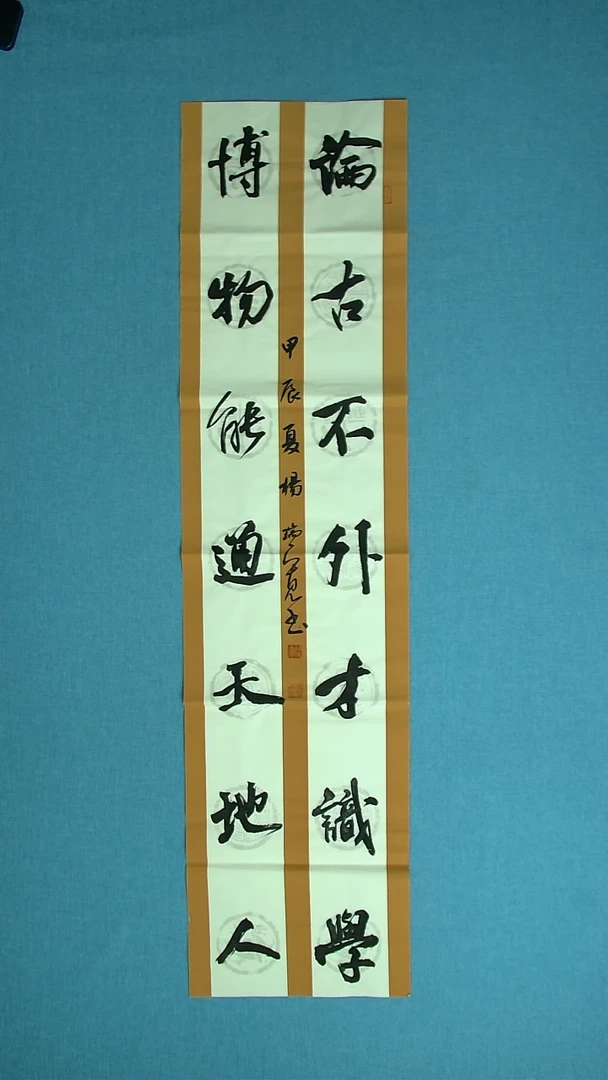 論古不外才識學
博物能通天地人
甲辰夏楊瑞